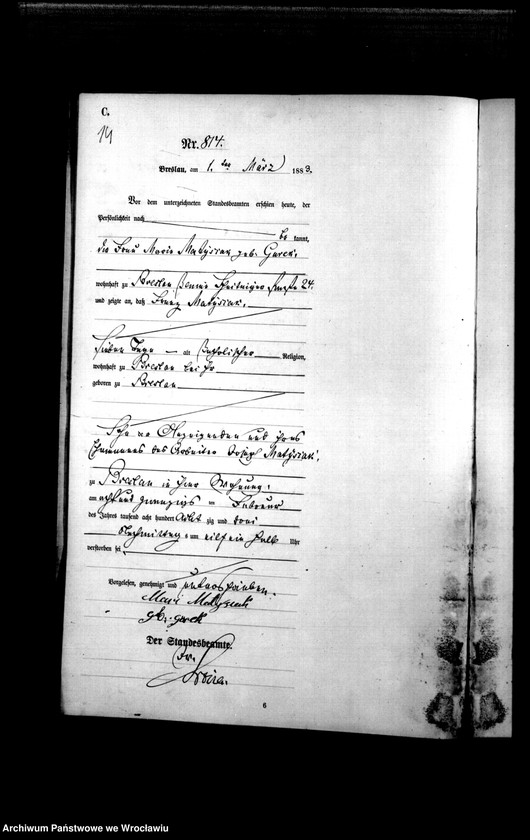 C.
14
Nr. 814.
Breslau, am 1. ten März 1883.
Vor dem unterzeichneten Standesbeamten erschien heute, der
Persönlichkeit nach
be kannt,
die Frau Marie Matysiak geb. Gurek,
wohnhaft zu Breslau, 24.
und zeigte an, daß Franz Matysiak,
sieben Tage alt, katholischer Religion,
wohnhaft zu Breslau bei ihr
geboren zu Breslau
Sohn der Anzeigenden und ihres
Ehemannes des Arbeiters Joseph Matysiak,
zu Breslau in ihrer Wohnung,
am acht und zwanzigsten Februar
des Jahres tausend acht hundert acht zig und drei
Nachmittags um elf ein halb Uhr
verstorben sei
Vorgelesen, genehmigt und unterschrieben.
Marie Matysiak
geb. gurek
Der Standesbeamte.
Dr.
6
Archiwum Państwowe we Wrocławiu